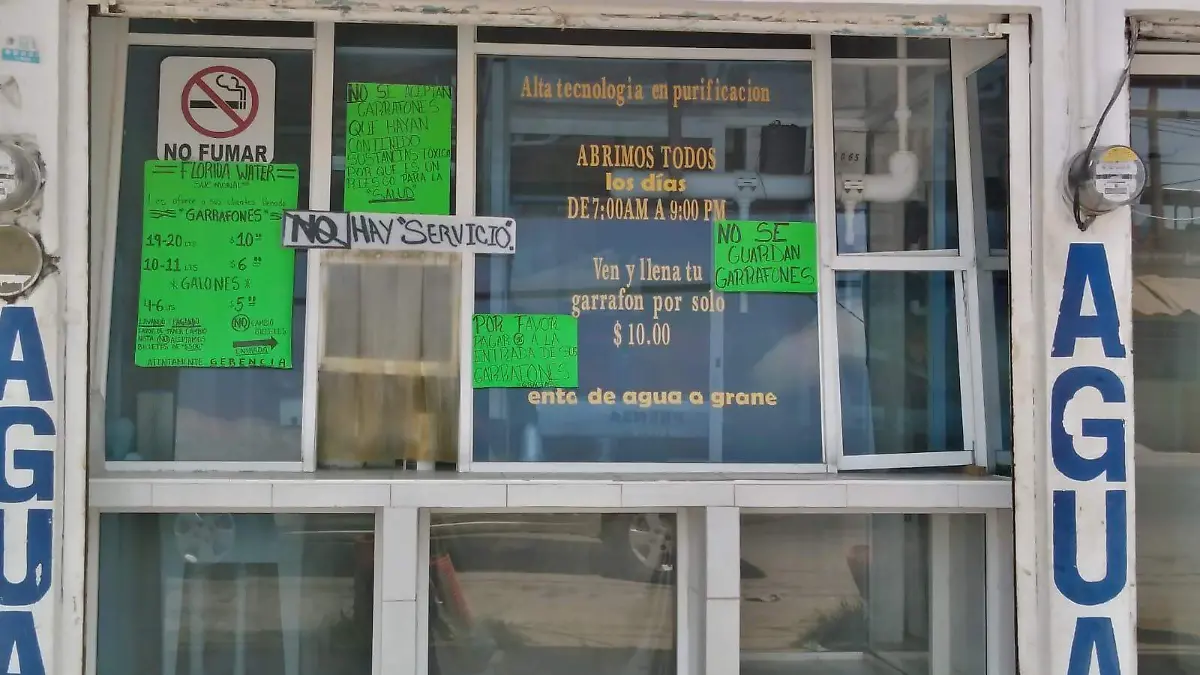 NO FUMAR
FLORIDA WATER
SUCURSAL
Les ofrece a sus clientes llenado
"GARRAFONES"
19-20 LTS $10
10-11 LTS $6
GALONES
4-6 LTS $5
NO
ATENTAMENTE GERENCIA
NO SE ACEPTAN
GARRAFONES
QUE HAYAN
CONTENIDO
SUSTANCIAS TOXICA
POR QUE ES UN
RIESGO PARA LA
"SALUD"
NO HAY "SERVICIO".
Alta tecnologia en purificacion
ABRIMOS TODOS
los días
DE 7:00AM A 9:00 PM
Ven y llena tu
garrafon por solo
$ 10.00
enta de agua a grane
NO SE
GUARDAN
GARRAFONES
POR FAVOR
PAGAR A LA
ENTRADA DE SUS
GARRAFONES
AGUA
AGUA